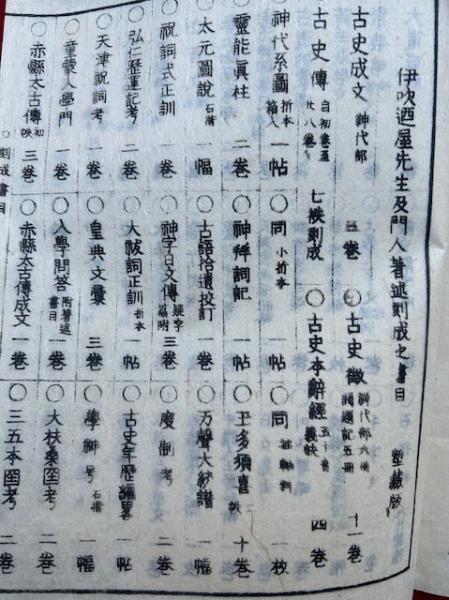 伊吹廼屋先生及門人著述刻成之書目 塾藏版
古史成文 神代部 三卷 ○古史徵 神代部六冊 開題記五冊 十一卷
古史傳 自初卷至廿八卷 七帙刻成 ○古史本辭經 五十音義訣 四卷
○神代系圖 折本箱入 一帖 ○同 小折本 一帖 ○同 一枚
○靈能眞柱 二卷 ○神拜詞記 一帖 ○玉多須喜 十卷
○太元圖說 石摺 一幅 ○古語拾遺挍訂 一卷 ○万聲大統譜 一幅
○祝詞式正訓 一卷 ○神字日文傳 疑字篇附 三卷 ○度制考 二卷
○弘仁歷運記考 二卷 ○大祓詞正訓 折本 一帖 ○古史年歷編畧 一帖
○天津祝詞考 一卷 ○皇典文彙 三卷 ○學神號 石摺 一幅
○童蒙入學門 一卷 ○入學問答 附著述書目 一卷 ○大扶桑國考 二卷
○赤縣太古傳 初帙 三卷 ○赤縣太古傳成文 一卷 ○三五本國考 二卷
○刻成書目